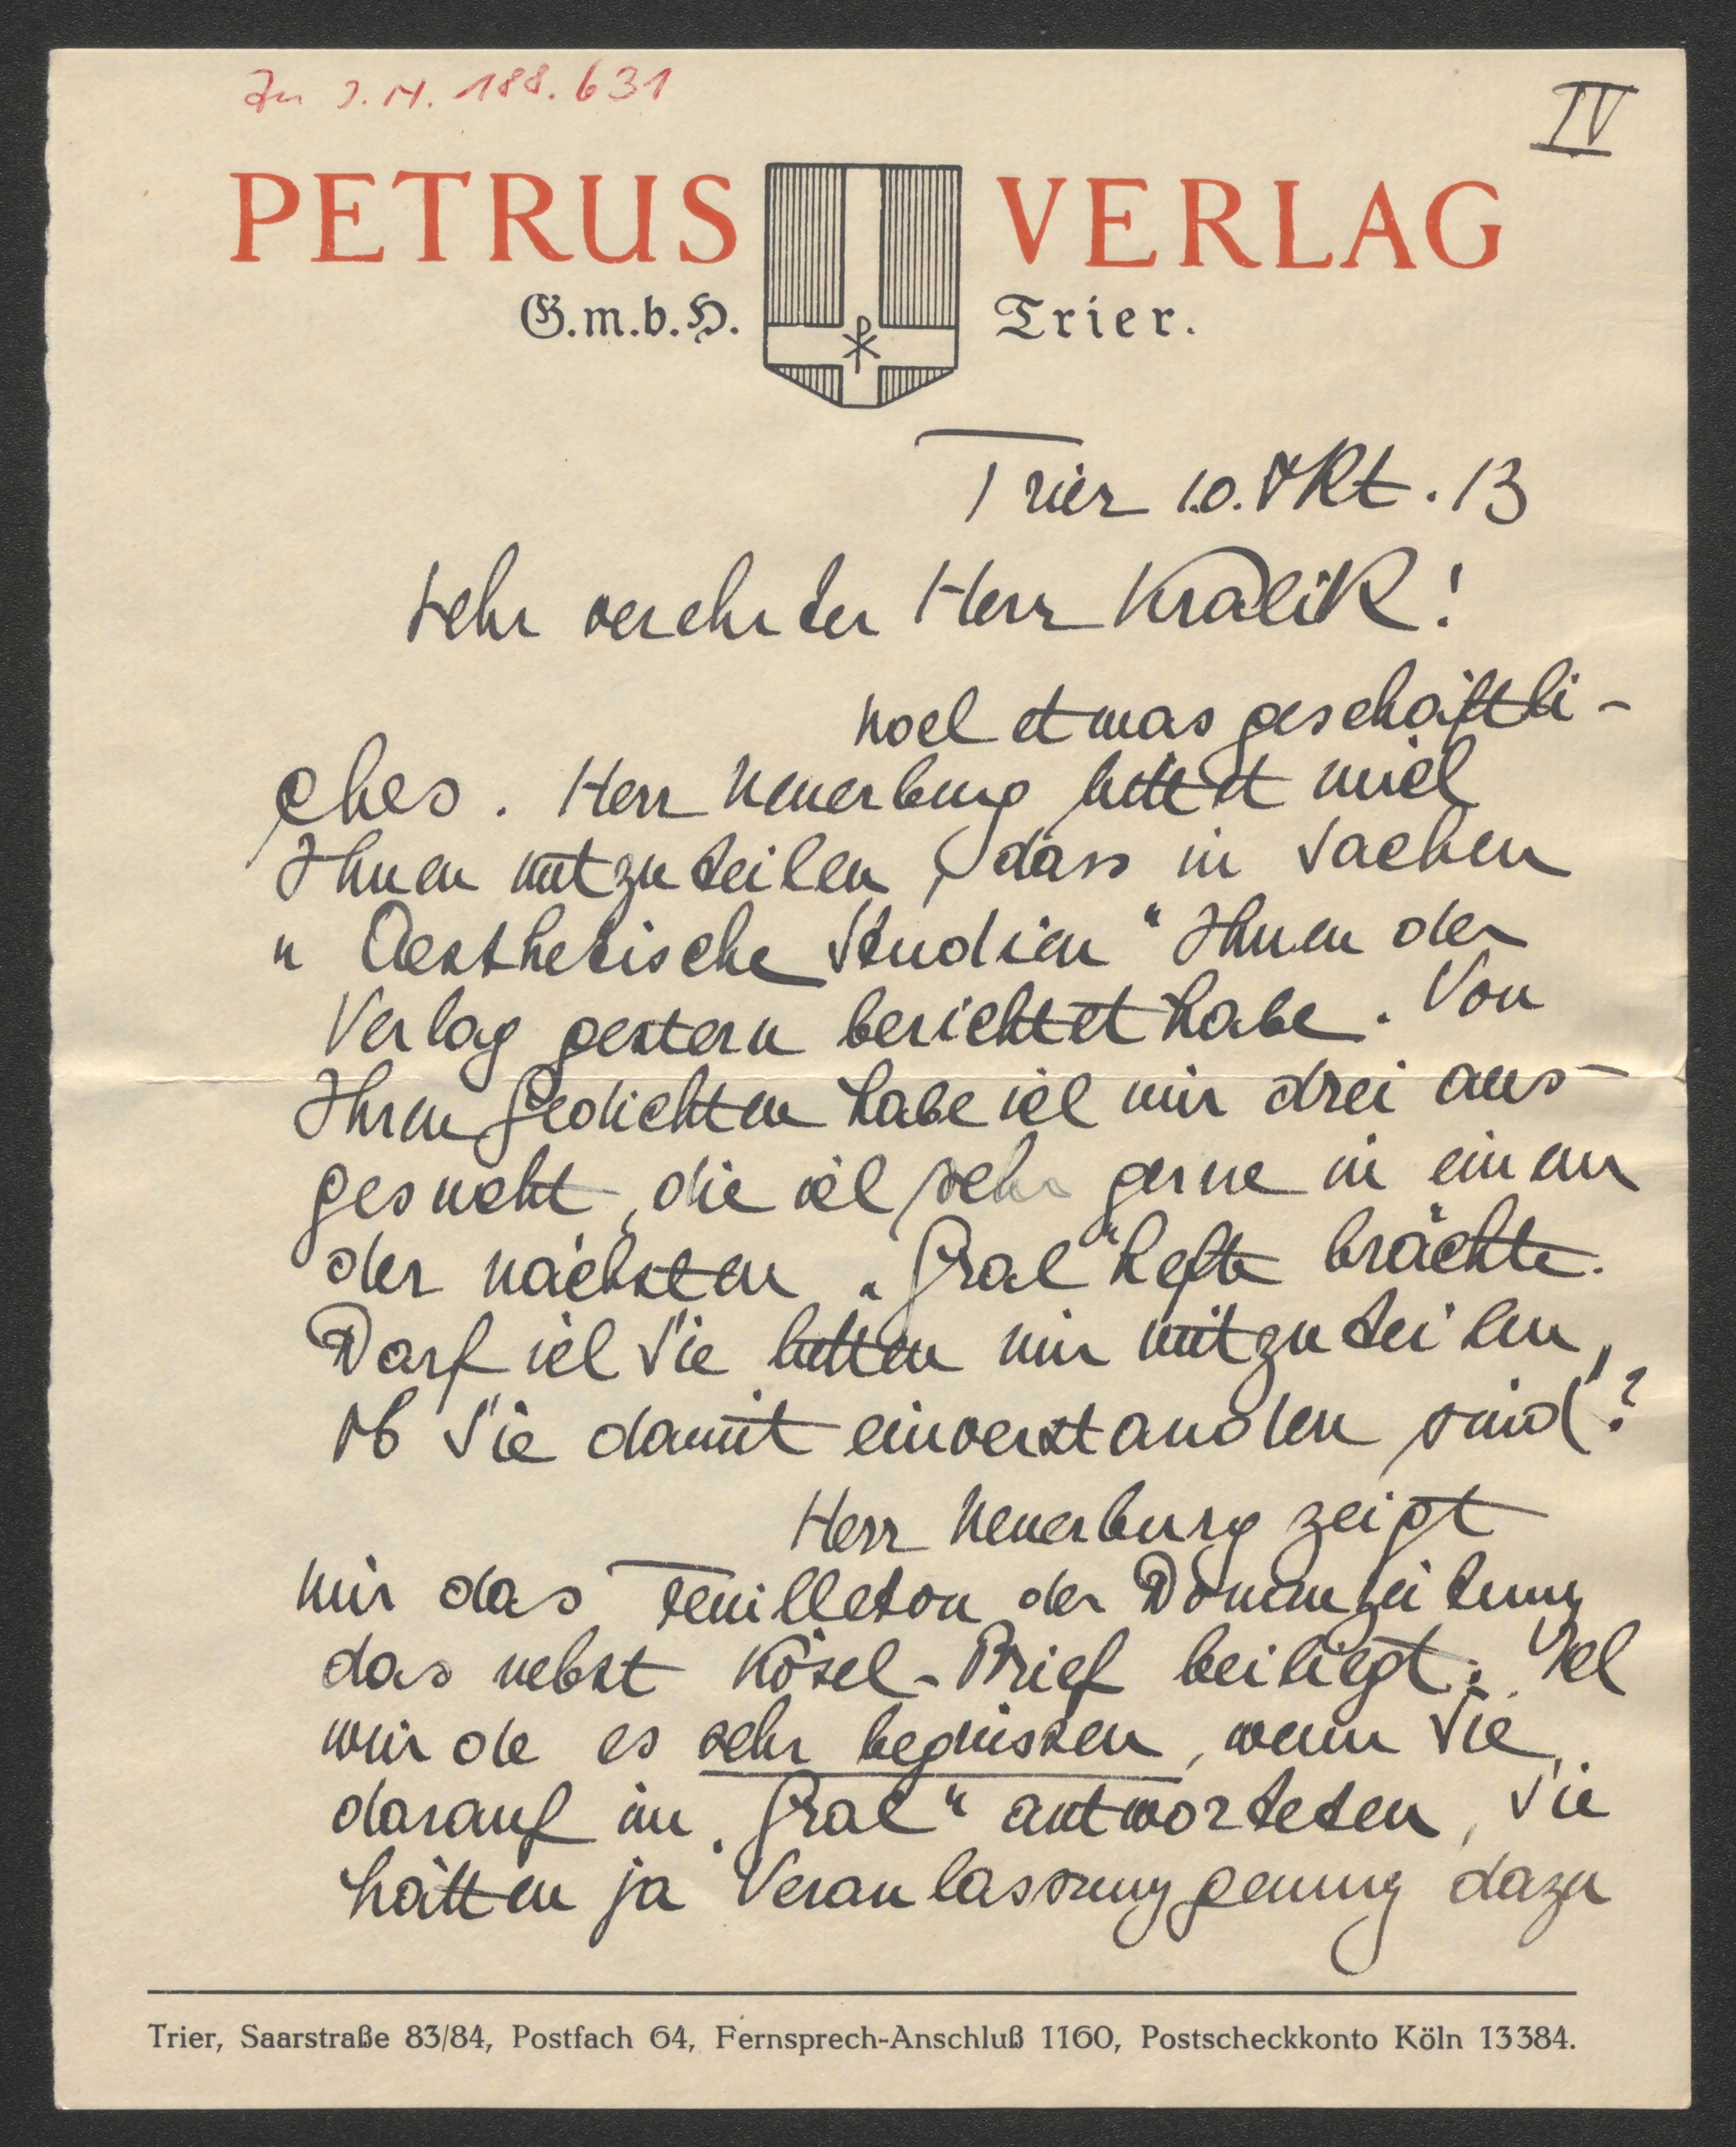 Zu J.N. 188.631
IV
PETRUS VERLAG
G.m.b.H. Trier.
Trier 10. Okt. 13
Sehr verehrter Herr Kralik!
Noch etwas geschäftli-
ches. Herr Neuerburg bittet mich
Ihnen mitzuteilen, dass in Sachen
"Oesthetische Studien" Ihnen der
Verlag gestern berichtet habe. Von
Ihren Gedichten habe ich mir drei aus-
gesucht, die ich sehr gerne in einem
der nächsten "Gral"hefte brächte.
Darf ich Sie bitten mir mitzuteilen,
ob Sie damit einverstanden sind?
Herr Neuerburg zeigt
mir das Feuilleton der Donauzeitung
das nebst Kösel-Brief beiliegt. Ich
würde es sehr begrüssen, wenn Sie
darauf im "Gral" antworteten, Sie
hätten ja Veranlassung genung dazu
Trier, Saarstraße 83/84, Postfach 64, Fernsprech-Anschluß 1160, Postscheckkonto Köln 13384.